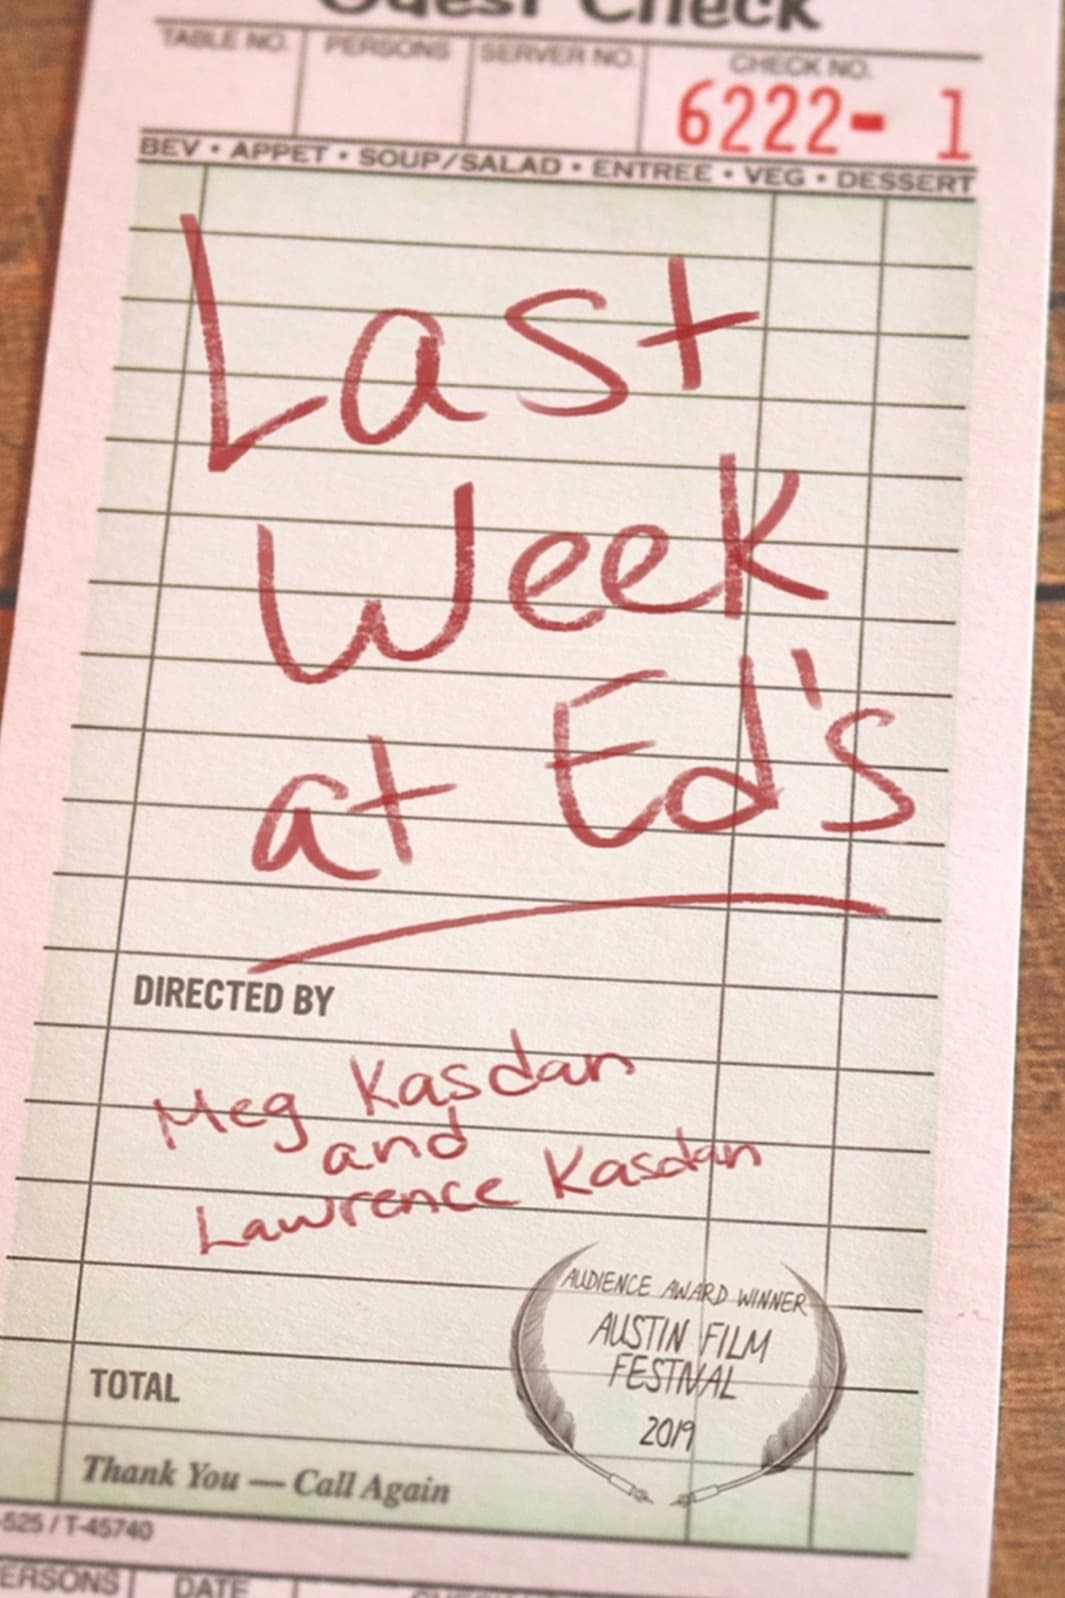 Guest Check
TABLE NO. PERSONS SERVER NO. CHECK NO.
6222- 1
BEV • APPET • SOUP/SALAD • ENTREE • VEG • DESSERT
Last
Week
at Ed's
DIRECTED BY
Meg Kasdan
and
Lawrence Kasdan
AUDIENCE AWARD WINNER
AUSTIN FILM
FESTIVAL
2019
TOTAL
Thank You — Call Again
-525 / T-45740
PERSONS DATE